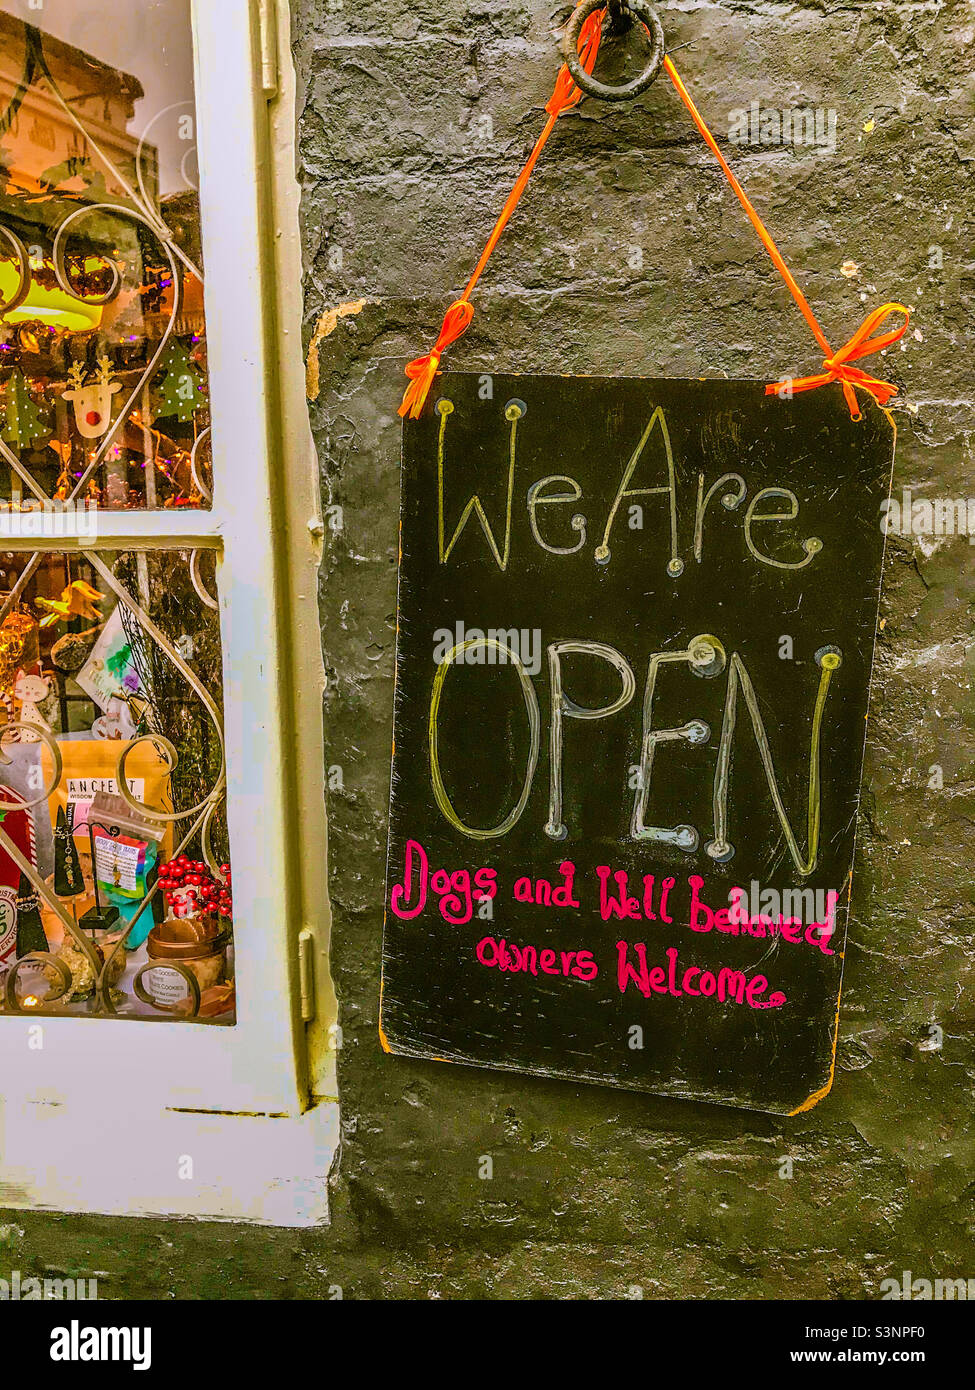 We Are
OPEN
Dogs and Well behaved
owners Welcome.
ANCIENT
WISDOM
COOKIES
alamy
Image ID: S3NPF0
www.alamy.com